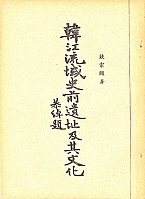 饒宗頤著
韓江流域史前遺址及其文化
葉恭綽題